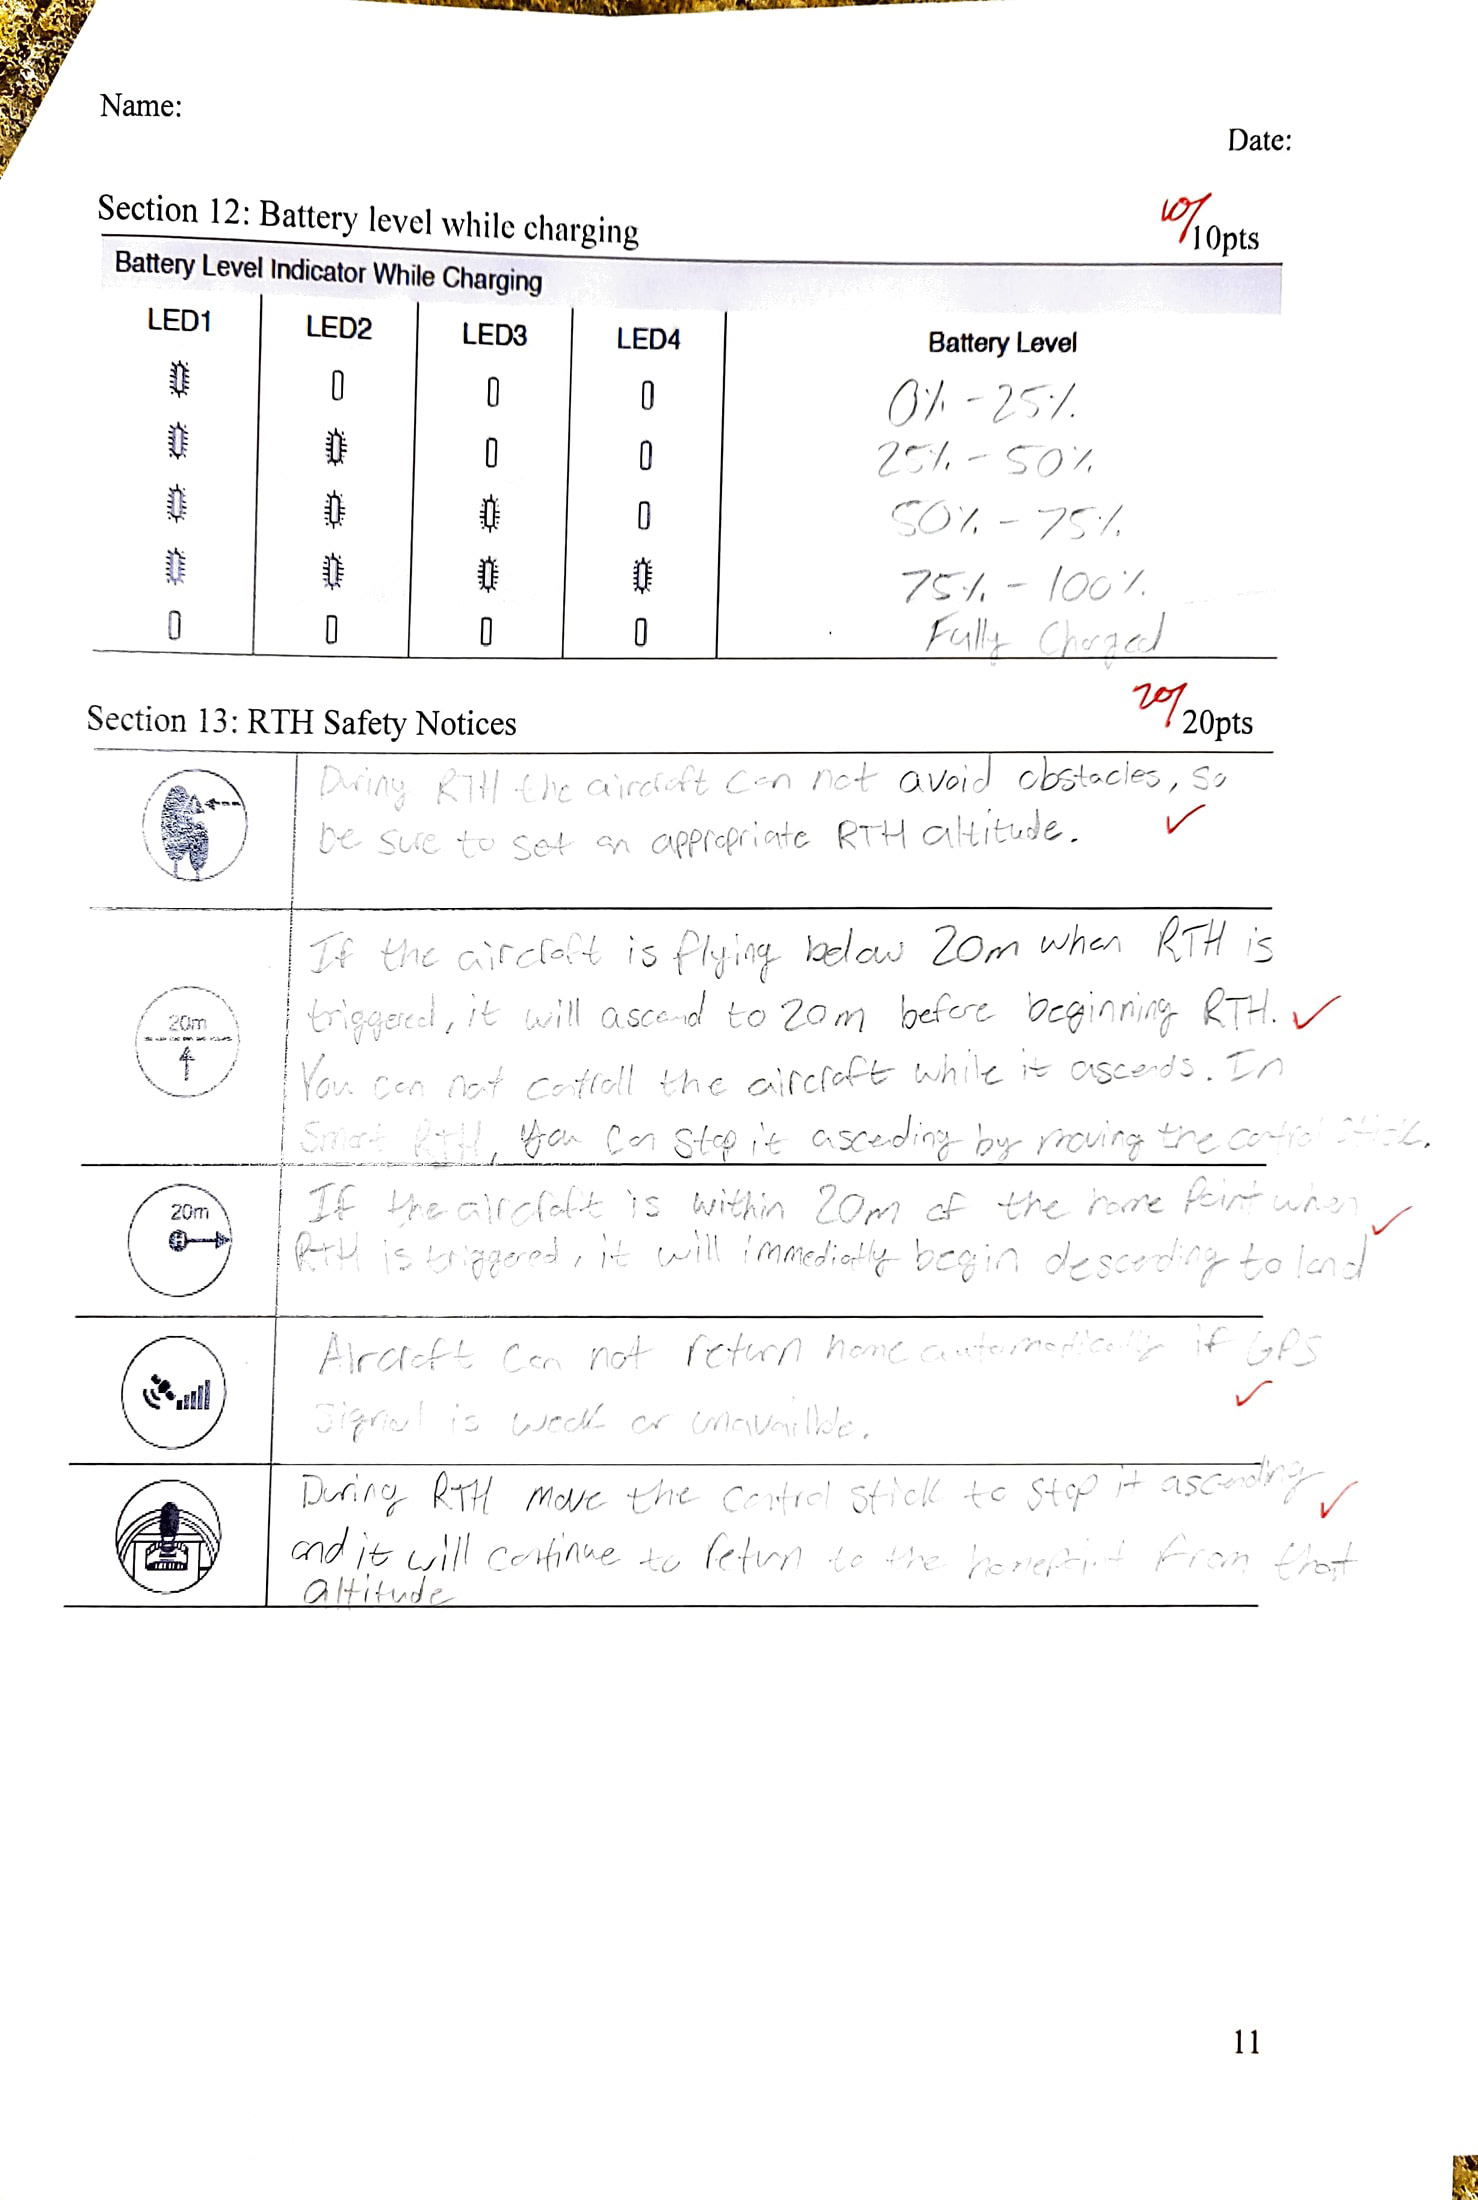 Name:
Date:
Section 12: Battery level while charging
10/10pts
Battery Level Indicator While Charging
LED1 LED2 LED3 LED4 Battery Level
0% - 25%
25% - 50%
50% - 75%
75% - 100%
Fully Charged
Section 13: RTH Safety Notices
20/20pts
During RTH the aircraft can not avoid obstacles, so
be sure to set an appropriate RTH altitude.
If the aircraft is flying below 20m when RTH is
triggered, it will ascend to 20m before beginning RTH.
20m
You can not controll the aircraft while it ascends. In
Smart RTH, you can stop it ascending by moving the control stick.
If the aircraft is within 20m of the home point when
20m
RTH is triggered, it will immediatly begin descending to land
Aircraft can not return home automatically if GPS
signal is weak or unavaillble.
During RTH move the control stick to stop it ascending
and it will continue to return to the homepoint from that
altitude
11